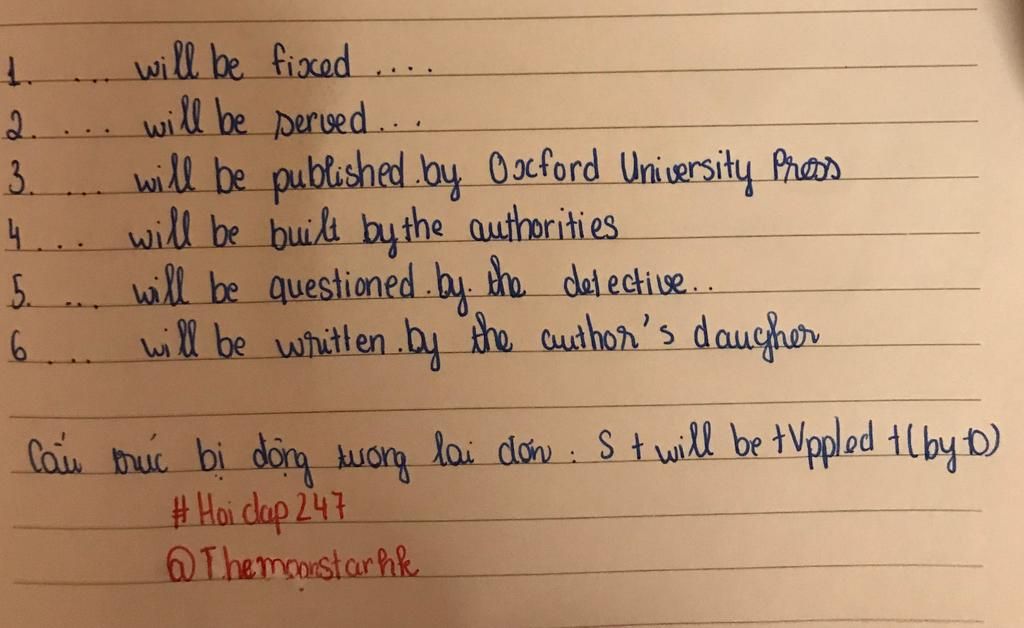 1. ... will be fixed ....
2. ... will be served...
3. ... will be published.by Oxford University Press
4 ... will be built by the authorities
5. ... will be questioned.by. the detective..
6 ... will be written.by the author's daugher
Cấu trúc bị động tương lai đơn : S + will be + Vpp/ed + (by + O)
#Hoidap247
@Themoonstarhk